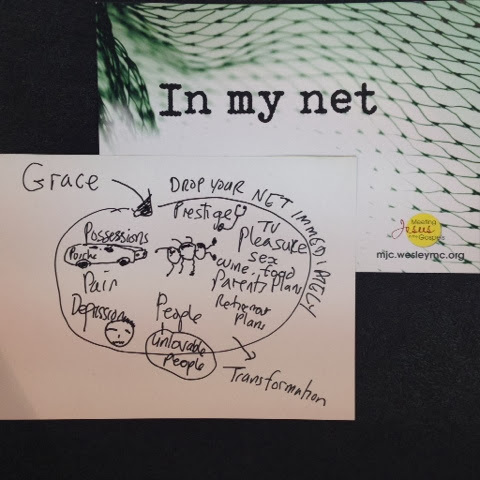 In my net
Meeting
Jesus
in the
Gospels
mjc.wesleyrmc.org
Grace
DROP YOUR NET IMMEDIATELY
Prestige
TV
Possessions
Pleasure
Sex
Porche
wine, food
Pain
Parents Plans
Depression
People
Retirement
Plans
Unlovable
People
Transformation